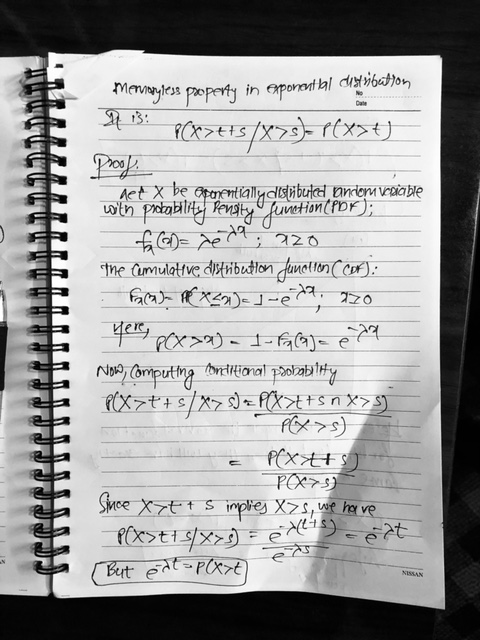 Memoryless property in exponential distribution
No
Date
It is:
P(X>t+s/X>s)= P(X>t)
Proof:
Let X be exponentially distributed random variable
with probability Density function (PDF);
fx(x)= λe^-λx ; x≥0
The cumulative distribution function (CDF):
Fx(x)= P(X≤x)= 1-e^-λx; x≥0
Here,
P(X>x) = 1-Fx(x)= e^-λx
Now, Computing conditional probability
P(X>t+s/X>s)= P(X>t+s ∩ X>s)
P(X>s)
= P(X>t+s)
P(X>s)
Since X>t+s implies X>s, we have
P(X>t+s/X>s) = e^-λ(t+s) = e^-λt
e^-λs
But e^-λt = P(X>t
NISSAN